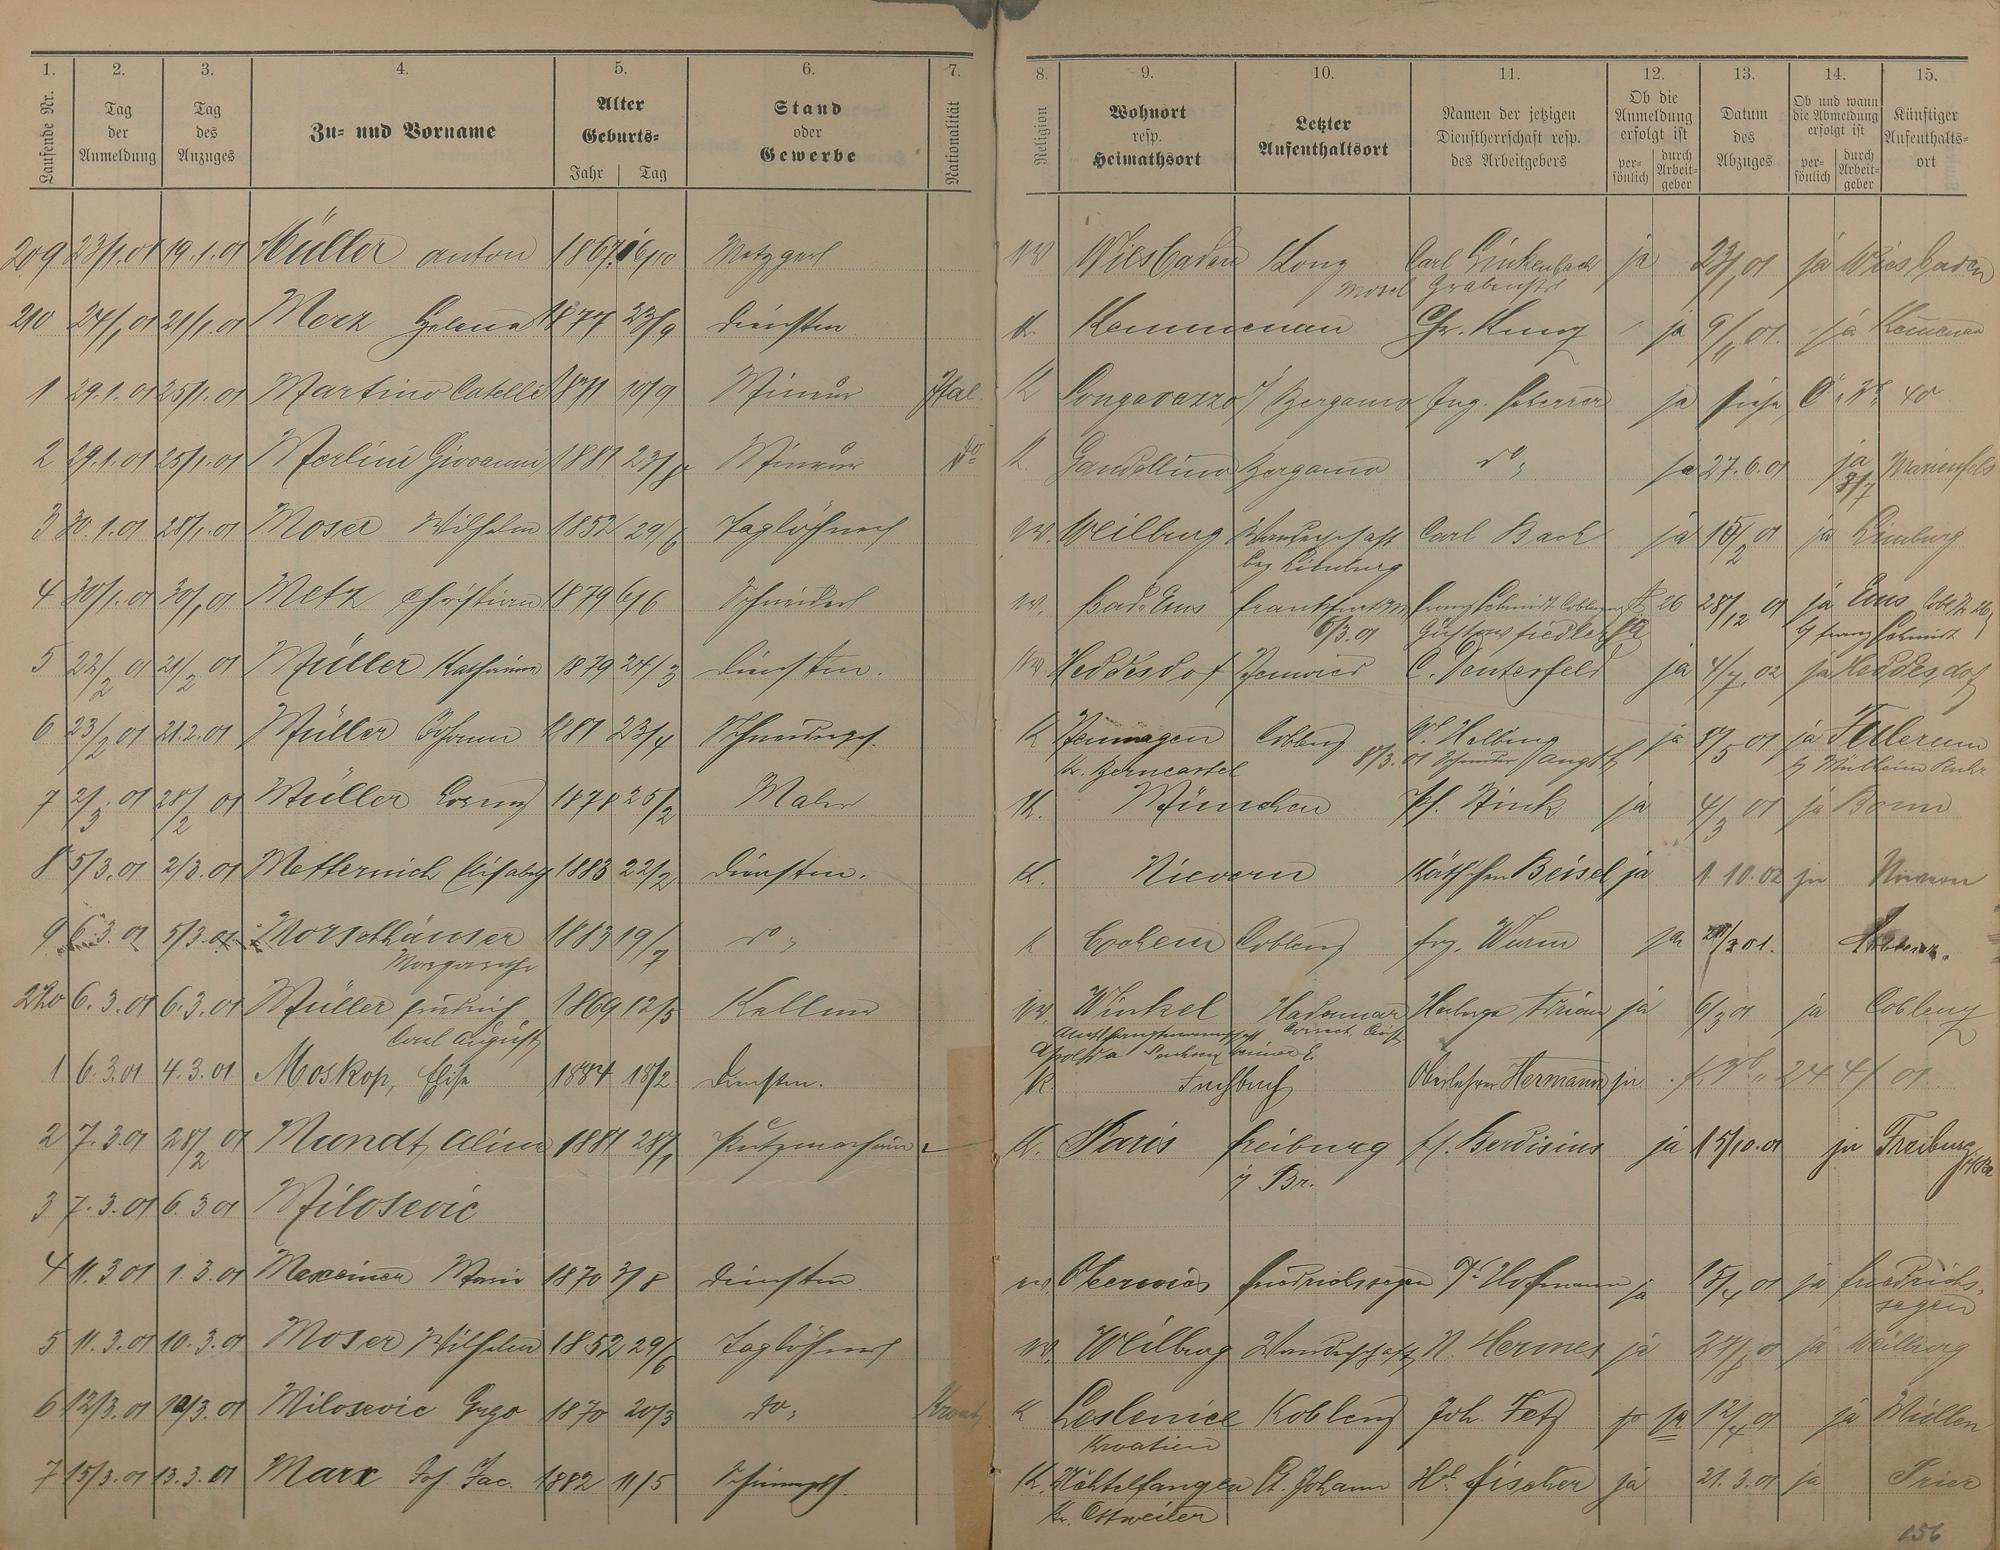 1. 2. 3. 4. 5. 6. 7. 8. 9. 10. 11. 12. 13. 14. 15.
Laufende Nr. Tag der Anmeldung Tag des Anzuges Zu- und Vorname Alter Geburts- Jahr Tag Stand oder Gewerbe Nationalität Religion Wohnort resp. Heimathsort Letzter Aufenthaltsort Namen der jetzigen Dienstherrschaft resp. des Arbeitgebers Ob die Anmeldung erfolgt ist persönlich durch Arbeitgeber Datum des Abzuges Ob und wann die Abmeldung erfolgt ist persönlich durch Arbeitgeber Künftiger Aufenthalts-ort
209 23/1.01 19.1.01 Müller Anton 1867 16/10 Metzger Wiesbaden Carl Linkenbach ja 23/1 01 ja Wiesbaden
Mosel Grabenstr
210 24/1 01 21/1.01 Merz Helena 1877 23/9 Diensten K. Kemmenau Chr. Kunz ja 9/11 01. ja Kemmenau
1 29.1.01 25/1.01 Martino Catelli 1871 10/9 Mineur Ital. K Bergamo Jng. Scherrer ja siehe
2 29.1.01 25/1.01 Merlini Giovanni 1881 Mineur do K. Gandellino Bergamo do ja 27.6.01 ja Marienfels
3/7
3 30.1.01 28/1.01 Moser Wilhelm 1852 29/6 Taglöhner W. Weilburg Wanderschaft Carl Bach ja 15/2 01 ja Limburg
bez Limburg
4 30/1.01 30/1 01 Metz Christian 1879 6/6 Schneider W. Bad-Ems Frankfurt a/M Franz Schmidt 26 28/12 01 ja Ems
6/3.01 Gustav Fiedler ja bz Franz Schmidt
5 22/2 01 21/2 01 Müller Katharina 1879 24/3 Diensten. W. Heddesdof Neuwied C. Venterfeld ja 4/7.02 ja Heddesdof
6 23/2 01 21.2.01 Müller Johann 1881 23/4 Schneiderges. K Neumagen Coblenz W. Helbing ja 8/5 01 ja
Kr. Berncastel 8/3.01 Schneider Langst bz Mülheim Ruhr
7 2/3.01 28/2 01 Müller 1878 25/2 Maler K. München ja 4/3 01 ja Bonn
8 5/3.01 2/3.01 Metternich Elisabeth 1883 22/2 Diensten. K. Nievern Käthchen Beisel ja 1.10.02 ja Nievern
9 6.3.01 5/3.01 Morschhäuser 1883 19/7 do K Cochem Coblenz Frz. Wurm ja
Margarethe
220 6.3.01 6.3.01 Müller Friedrich 1869 12/5 Kellner W. Winkel Hadamar Herberge ja 6/3 01 ja Coblenz
Carl August Apolda
1 6.3.01 4.3.01 Moskop, Elise 1884 18/2 Diensten. K. Fachbach Oberlehrer Hermann ja. 24 4/01
2 7.3.01 28/2 01 Mundt, Alina 1881 28/1 Putzmacherin K. Paris Freiburg Berdisius ja 15/10.01 ja Freiburg
i/ Br.
3 7.3.01 6.3.01 Milosevic
4 11.3.01 1.3.01 Maxeiner Marie 1870 3/8 Diensten W. Oberwies Friedrichssegen Hofmann ja 15/4 01 ja Friedrichs-
segen
5 11.3.01 10.3.01 Moser Wilhelm 1852 29/6 Taglöhner W. Weilburg Wanderschaft N. Hermes ja ja Weilburg
6 12/3.01 12/3.01 Milosevic Grgo 1870 20/3 do Kroat. K Leslenice Koblenz Joh. Fetz ja 12/4 01 ja Miellen
Kroatien
7 15/3.01 13.3.01 Marx Joh Jac. 1882 11/5 K. Hüttelfangen St. Johann Hch. Fischer ja 21.3.01 ja Trier
Kr. Ottweiler
156